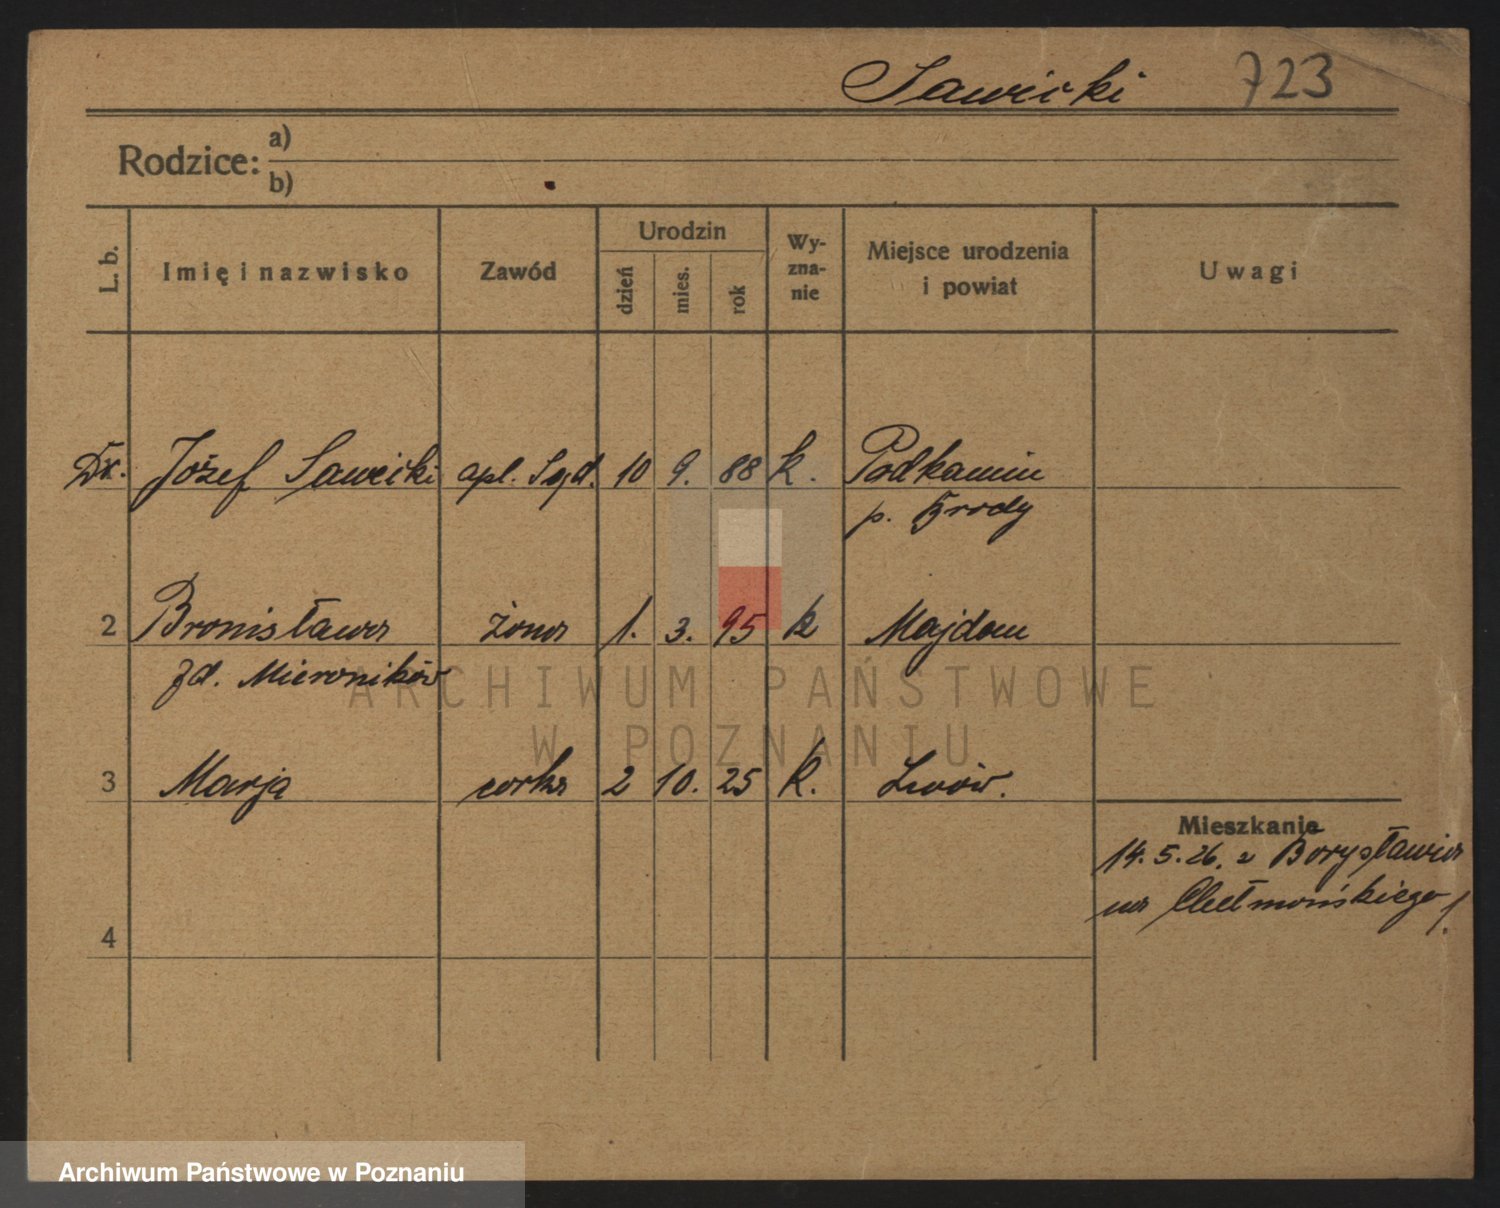 Sawicki 723
Rodzice: a)
b)
L. b. Imię i nazwisko Zawód Urodzin dzień mies. rok Wyznanie Miejsce urodzenia i powiat Uwagi
Dr. Józef Sawicki apl. Sąd. 10 9. 88 k. Podkamin
p. Brody
2 Bronisława żona 1. 3. 95 k Majdan
zd. Mieroników
3 Marja corka 2 10. 25 k. Lwów.
Mieszkanie
14.5.26. z Borysławia
na Chełmońskiego 1.
4
ARCHIWUM PAŃSTWOWE
W POZNANIU
Archiwum Państwowe w Poznaniu